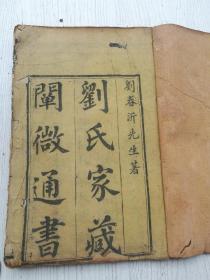 劉春沂先生著
劉氏家藏
闡微通書